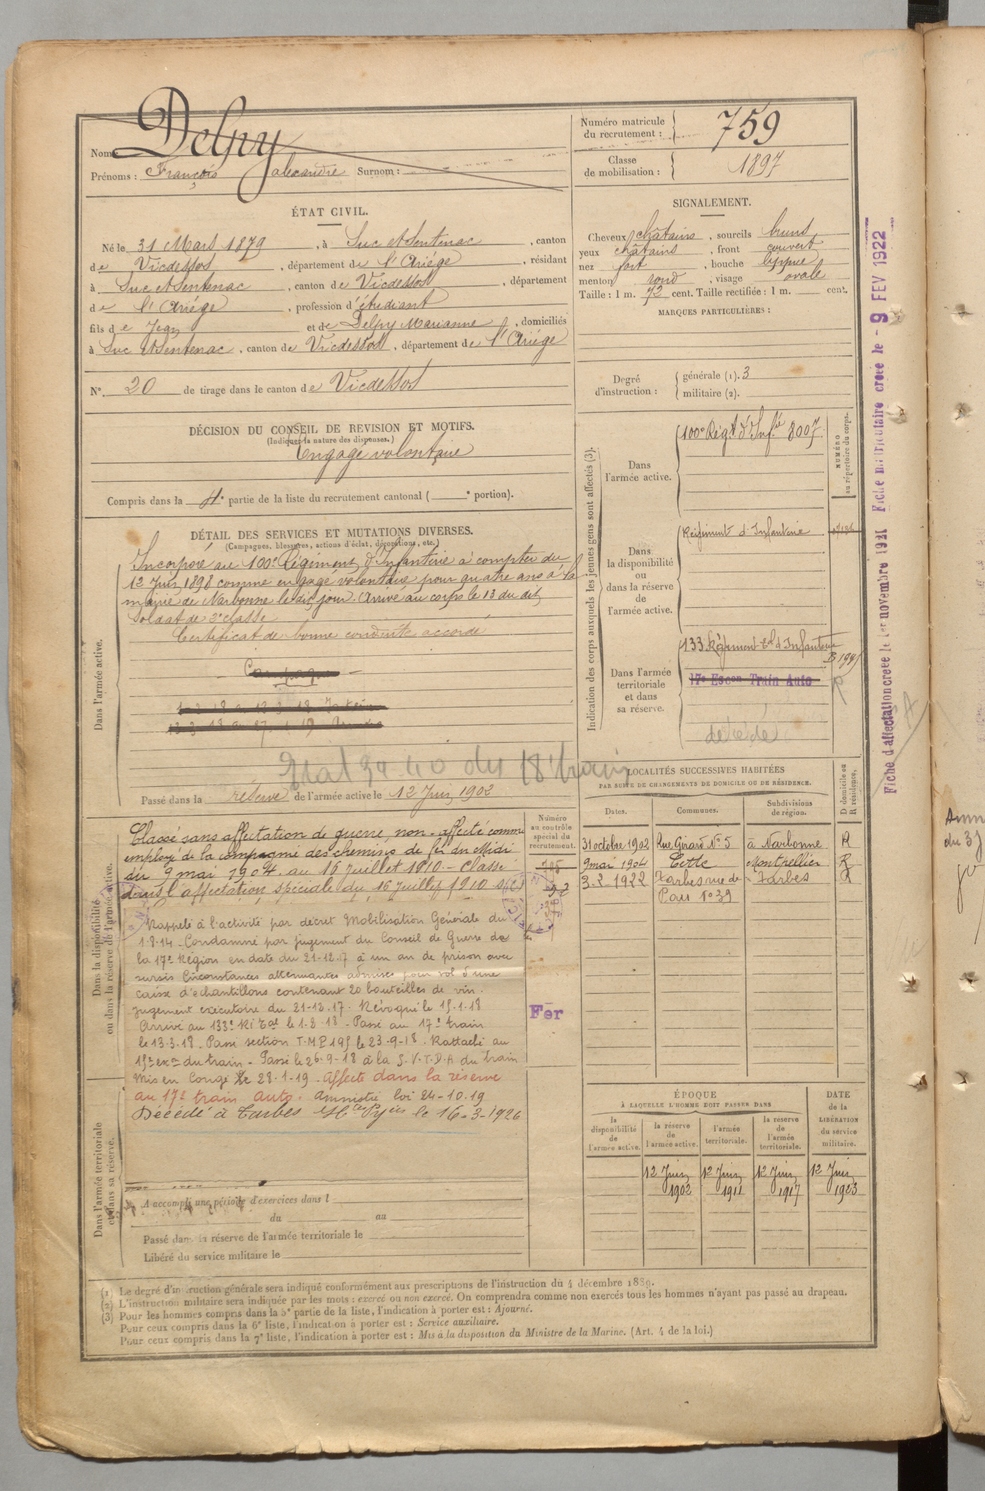 Nom : Delpy
Prénoms : François Alexandre Surnom :
Numéro matricule du recrutement : 759
Classe de mobilisation : 1897
ÉTAT CIVIL.
Né le 31 Mars 1879, à Suc et Sentenac, canton
de Vicdessos, département de l'Ariége, résidant
à Suc et Sentenac, canton de Vicdessos, département
de l'Ariége, profession d'étudiant
fils de Jean et de Delpy Marianne, domiciliés
à Suc et Sentenac, canton de Vicdessos, département de l'Ariége
N° 20 de tirage dans le canton de Vicdessos
SIGNALEMENT.
Cheveux châtains, sourcils bruns
yeux châtains, front couvert
nez fort, bouche
menton rond, visage ovale
Taille : 1 m. 72 cent. Taille rectifiée : 1 m. cent.
MARQUES PARTICULIÈRES :
Degré d'instruction : générale (1). 3
militaire (2).
DÉCISION DU CONSEIL DE REVISION ET MOTIFS.
(Indiquer la nature des dispenses.)
Engagé volontaire
Compris dans la 4e partie de la liste du recrutement cantonal ( e portion).
DÉTAIL DES SERVICES ET MUTATIONS DIVERSES.
(Campagnes, blessures, actions d'éclat, décorations, etc.)
Dans l'armée active.
Incorporé au 100e Régiment d'Infanterie à compter du
12 Juin 1898 comme engagé volontaire pour quatre ans à la
mairie de Narbonne le dit jour. Arrivé au corps le 13 du dit
Soldat de 2e classe
Certificat de bonne conduite accordé
Campagne
Passé dans la réserve de l'armée active le 12 Juin 1902
Dans la disponibilité ou dans la réserve de l'armée active.
Classé sans affectation de guerre non-affecté comme
employé de la compagnie des chemins de fer du Midi
du 9 mai 1904 au 16 juillet 1910 - Classé
dans l'affectation spéciale du 16 juillet 1910
Rappelé à l'activité par décret Mobilisation Générale du
1-8-14 - Condamné par jugement du Conseil de Guerre de
la 17e Région en date du 21-12-17 à un an de prison avec
sursis Circonstances atténuantes admises pour vol d'une
caisse d'échantillons contenant 20 bouteilles de vin.
Jugement exécutoire du 21-12-17. Révoqué le 15-1-18
Arrivé au 133e RI Tal le 1-2-18 - Passé au 17e train
le 13-3-18. Passé section T.M.P 195 le 23-9-18. Rattaché au
du train - Passé le 26-9-18 à la S.V.T.D.A du train
Mis en Congé le 28-1-19 - Affecté dans la réserve
au 17e train auto. Amnistié loi 24-10-19
Décédé à Tarbes le 16-3-1926
Dans l'armée territoriale et dans sa réserve.
A accompli une période d'exercices dans l
du au
Passé dans la réserve de l'armée territoriale le
Libéré du service militaire le
Indication des corps auxquels les jeunes gens sont affectés (3).
NUMÉRO au répertoire du corps.
Dans l'armée active.
100e Régt d'Infie 8007
Dans la disponibilité ou dans la réserve de l'armée active.
Régiment d'Infanterie
Dans l'armée territoriale et dans sa réserve.
133 Régiment Tal d'Infanterie
17e Escon Train Auto
décédé
Numéro au contrôle spécial du recrutement.
Fer
LOCALITÉS SUCCESSIVES HABITÉES
PAR SUITE DE CHANGEMENTS DE DOMICILE OU DE RÉSIDENCE.
Dates. Communes. Subdivisions de région. D domicile ou R résidence.
31 octobre 1902 Rue Girard N° 5 à Narbonne R
9 mai 1904 Cette Montpellier R
3-2-1922 Tarbes rue de Pau N° 39 Tarbes R
ÉPOQUE
À LAQUELLE L'HOMME DOIT PASSER DANS
la disponibilité de l'armée active. la réserve de l'armée active. l'armée territoriale. la réserve de l'armée territoriale.
DATE de la LIBÉRATION du service militaire.
12 Juin 1902 12 Juin 1911 12 Juin 1917 12 Juin 1923
Fiche d'affectation créée le 1er novembre 1921 Fiche matriculaire créée le - 9 FEV 1922
(1) Le degré d'instruction générale sera indiqué conformément aux prescriptions de l'instruction du 4 décembre 1889.
(2) L'instruction militaire sera indiquée par les mots : exercé ou non exercé. On comprendra comme non exercés tous les hommes n'ayant pas passé au drapeau.
(3) Pour les hommes compris dans la 5e partie de la liste, l'indication à porter est : Ajourné.
Pour ceux compris dans la 6e liste, l'indication à porter est : Service auxiliaire.
Pour ceux compris dans la 7e liste, l'indication à porter est : Mis à la disposition du Ministre de la Marine. (Art. 4 de la loi.)